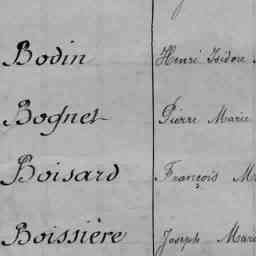 Bodin Henri Isidore
Bognet Pierre Marie
Boisard François
Boissière Joseph Marie